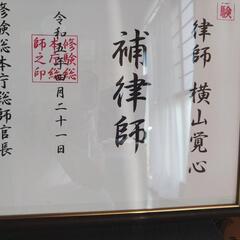 験
律師 横山覚心
補律師
令和五年四月二十一日
修験総
本庁総
師之印
修験総本庁総師官長